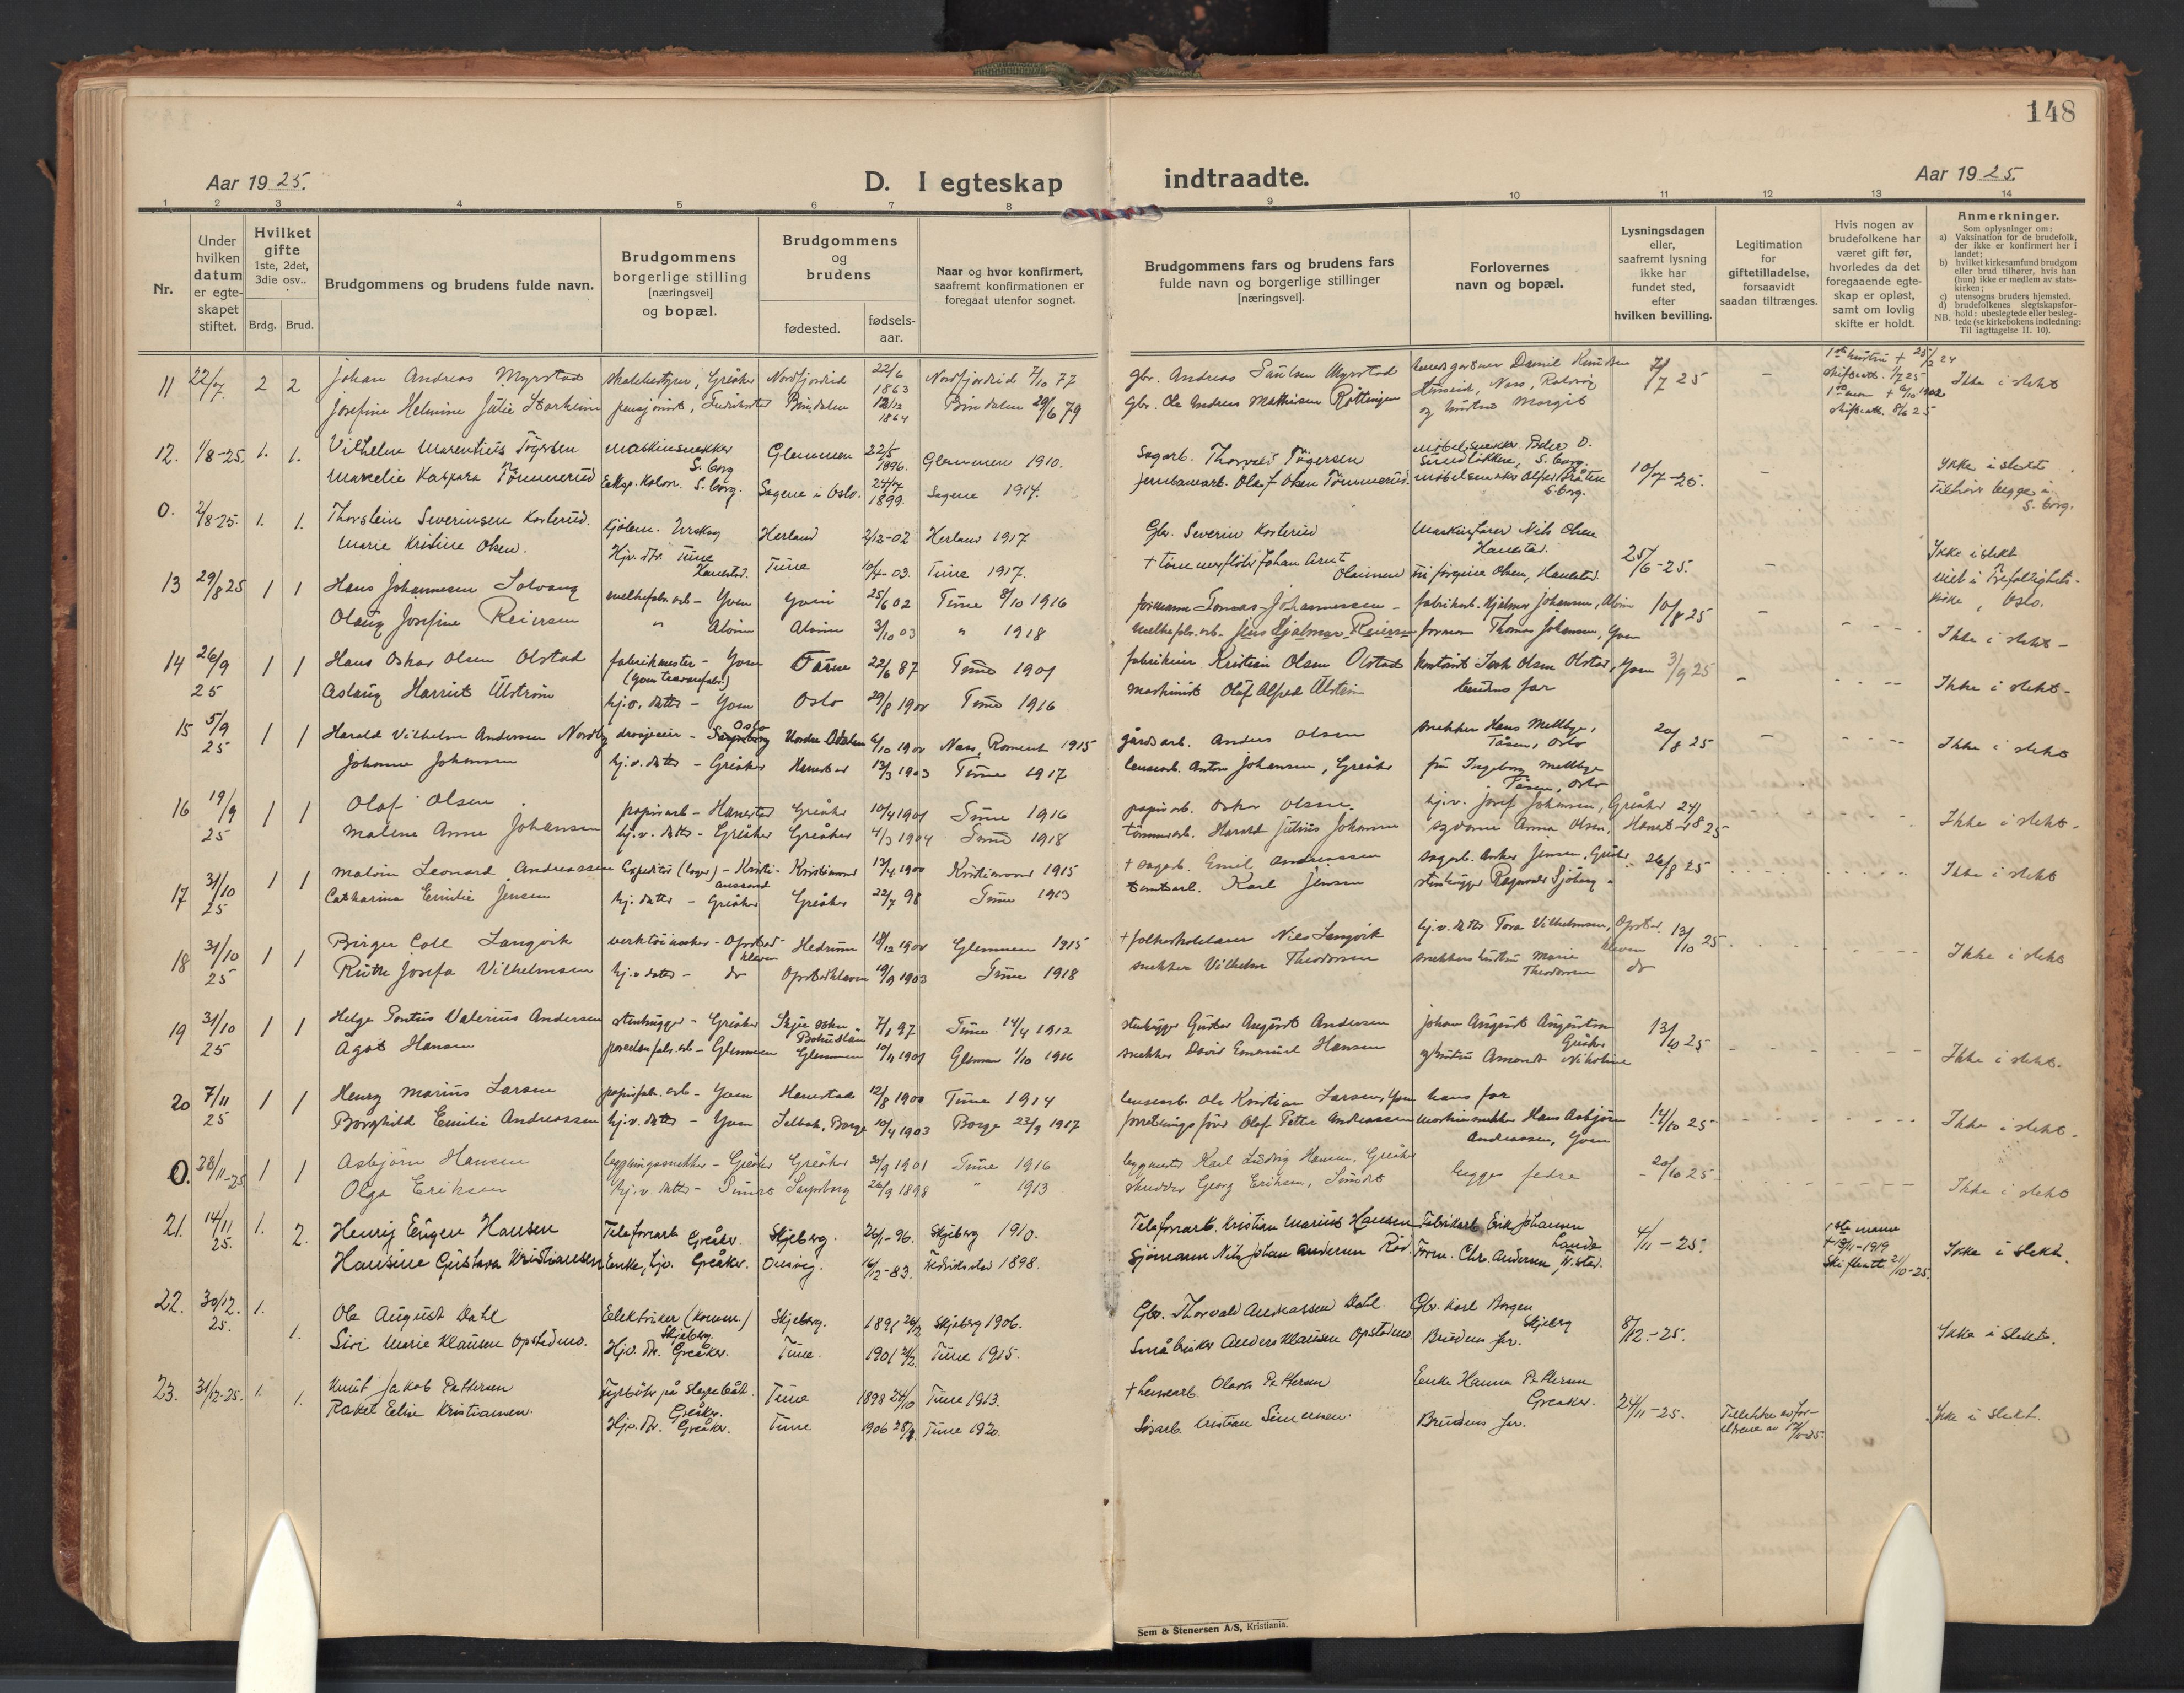 148
Aar 1925.
D. I egteskap indtraadte.
Aar 1925.
1 2 3 4 5 6 7 8 9 10 11 12 13 14
Nr.
Under hvilken datum er egteskapet stiftet.
Hvilket gifte
1ste, 2det, 3die osv..
Brdg. Brud.
Brudgommens og brudens fulde navn.
Brudgommens borgerlige stilling [næringsvei] og bopæl.
Brudgommens og brudens
fødested.
fødselsaar.
Naar og hvor konfirmert, saafremt konfirmationen er foregaat utenfor sognet.
Brudgommens fars og brudens fars fulde navn og borgerlige stillinger [næringsvei].
Forlovernes navn og bopæl.
Lysningsdagen eller, saafremt lysning ikke har fundet sted, efter hvilken bevilling.
Legitimation for giftetilladelse, forsaavidt saadan tiltrænges.
Hvis nogen av brudefolkene har været gift før, hvorledes da det foregaaende egteskap er opløst, samt om lovlig skifte er holdt.
Anmerkninger.
Som oplysninger om:
a) Vaksination for de brudefolk, der ikke er konfirmert her i landet;
b) hvilket kirkesamfund brudgom eller brud tilhører, hvis han (hun) ikke er medlem av statskirken;
c) utensogns bruders hjemsted.
d) brudefolkenes slegtskapsforhold: ubeslegtede eller beslegtede (se kirkebokens indledning:
NB. Til iagttagelse II. 10).
11 22/7. 2 2 Johan Andreas Myrstad Greåker Nordfjordeid 22/6 1863 Nordfjordeid 7/10 77 Gbr. Andreas Myrstad Daniel Knudsen 7/7 25 - Ikke i slekt
Josefine Helmine Julie pensjonist, Bindalen 1864 Bindalen 29/6 79 Gbr. Ole Andreas Mathisen og hustru Margit
12. 1/8-25. 1. 1. Vilhelm Marentius Tøgersen Maskinsnekker S.borg Glemmen 22/5 1896. Glemmen 1910. Sagarb. Thorvald Tøgersen S.borg. 10/7-25. - Ikke i slekt
Marcelie Kaspara Tømmerud S.borg. Sagene i Oslo. 24/7 1899. Sagene 1914. Jernbanearb. Olaf Olsen Tømmerud. S.borg. Tilhører begge S.borg.
0. 2/8-25. 1. 1. Thorstein Severinsen Korterud. Herland 2/12-02 Herland 1917 Gbr. Severin Korterud Maskinfører Nils Olsen Hanestad. 25/6-25. - Ikke i slekt
Marie Kristine Olsen. Hjv. dtr. Tune Hanestad. Tune 10/4-03. Tune 1917. Johan Olsen, Hanestad. viet i Trefoldighetskirke, Oslo.
13 29/8 25 1 1 Hans Johannesen Solvang Yven Yven 25/6 02 Tune 8/10 1916 formann Tomas Johannessen - fabrikarb. Hjalmar Johansen, Alvim 10/8 25 - Ikke i slekt -
Olaug Josefine Reiersen " Alvim Alvim 3/10 03 " 1918 Jens Hjalmar Reiersen formann Thomas Johansen, Yven
14 26/9 25 1 1 Hans Oskar Olsen Olstad fabrikmester - Yven Tune 22/6 87 Tune 1901 Kristian Olsen Olstad Olsen Olstad, Yven 3/9 25 - Ikke i slekt -
Aslaug Harriet Ulstrøm hj.v. datter - Yven Oslo 29/8 1900 Tune 1916 Maskinist Olaf Alfred Ulstrøm brudens far
15 5/9 25 1 1 Harald Vilhelm Andersen Nordby drosjeeier - Oslo 6/10 1900 Nes, Romerik 1915 gårdsarb. Anders Olsen snekker Hans Mellbye, Tåsen, Oslo 20/8 25 - Ikke i slekt
Johanne Johansen hj.v. datter - Greåker Hanestad 13/3 1903 Tune 1917 lensearb. Anton Johansen, Greåker fru Ingeborg Mellbye Tåsen, Oslo
16 19/9 25 1 1 Olaf Olsen papirarb - Hanestad Greåker 10/4 1901 Tune 1916 papirarb. Oskar Olsen. hj.v. Josef Johansen, Greåker 24/8 25 Ikke i slekt -
Malene Anne Johansen hj.v. datter - Greåker Greåker 4/3 1904 Tune 1918 tømmerarb. Harald Julius Johansen sydame Anna Olsen, Hanestad
17 31/10 25 1 1 Malvin Leonard Andreassen Expeditør (lager) - Kristiansund Kristiansund 13/4 1900 Kristiansund 1915 + sagarb. Emil Andreassen sagarb. Anker Jensen, Greåker 26/8 25 Ikke i slekt
Catharina Emilie Jensen hj. datter - Greåker Greåker 22/7 98 Tune 1913 Karl Jensen stenhugger Ragnvald Sjøberg "
18 31/10 25 1 1 Birger Coll Langvik Hedrum 18/12 1900 Glemmen 1915 + Nils Langvik hj.v. datter Tora Vilhelmsen, 13/10 25 Ikke i slekt
Ruth Josefa Vilhelmsen hj.v datter - do 19/9 1903 Tune 1918 snekker Vilhelm Theodorsen snekkers hustru Marie Theodorsen do
19 31/10 25 1 1 Helge Pontus Valerius Andersen stenhugger - Greåker 7/1 97 Tune 14/4 1912 stenhugger Gustav August Andersen Johan August Augustson Greåker 13/10 25 Ikke i slekt -
Agot Hansen Glemmen Glemmen 10/11 1901 Glemmen 1/10 1916 snekker David Emanuel Hansen og hustru Amanda Nikoline
20 7/11 25 1 1 Henry Marius Larsen papirfabr. arb - Yven Hanestad 12/8 1900 Tune 1914 lensearb Ole Kristian Larsen, Yven hans far 14/10 25 - Ikke i slekt -
Borghild Emilie Andreassen hj.v. datter - Yven Selbak, Borge 10/4 1903 Borge 23/9 1917 forretningsfører Olaf Petter Andreassen Hans Asbjørn Andreassen, Yven
0. 28/11-25 1 1 Asbjørn Hansen bygningssnekker - Greåker Greåker 1901 Tune 1916 byggmester Karl Ludvig Hansen, Greåker begges fedre 20/10 25 - Ikke i slekt
Olga Eriksen hj.v. datter - Sarpsborg 26/9 1898 " 1913 skredder Georg Eriksen,
21. 14/11 25. 1. 2. Henry Eugen Hansen Telefonarb Greåker. Skjeberg. 26/1-96. Skjeberg 1910. Telefonarb. Kristian Marius Hansen Fabrikarb. Erik Johansen Lande 4/11-25. 1ste mann + 19/11-1919 Ikke i slekt.
Hansine Gustava Kristiansen Enke, hjv. Greåker. Onsøy. 16/12-83. Fredrikstad 1898. Sjømann Nils Johan Andersen Rød. Form. Chr. Andersen, Skifteatt. 21/10-25.
22. 30/12. 25. 1. Ole August Dahl Elektriker Skjeberg. Skjeberg. 1891 Skjeberg 1906. Gbr. Thorvald Andreassen Dahl. Gbr. Karl Borgen Skjeberg 8/12.-25. Ikke i slekt.
1. Siri Marie Klausen Opstadmo. Hjv. dtr. Greåker. Tune. 1901 Tune 1915. Småbruker Anders Klausen Opstadmo Brudens far.
23. 31/12-25. 1. Knut Jakob Pettersen Fyrbøter på slepebåt. Greåker. Tune 1898 24/10 Tune 1913. + Lensearb. Olaves Pettersen Enke Hanna Pettersen Greaker. 24/11-25. Tillatelse av foreldrene av Ikke i slekt.
1. Rakel Eline Kristiansen. Hjv. dtr. Greåker. Tune 1906 Tune 1920. Kristian Simensen. Brudens far.
Sem & Stenersen A/S, Kristiania.